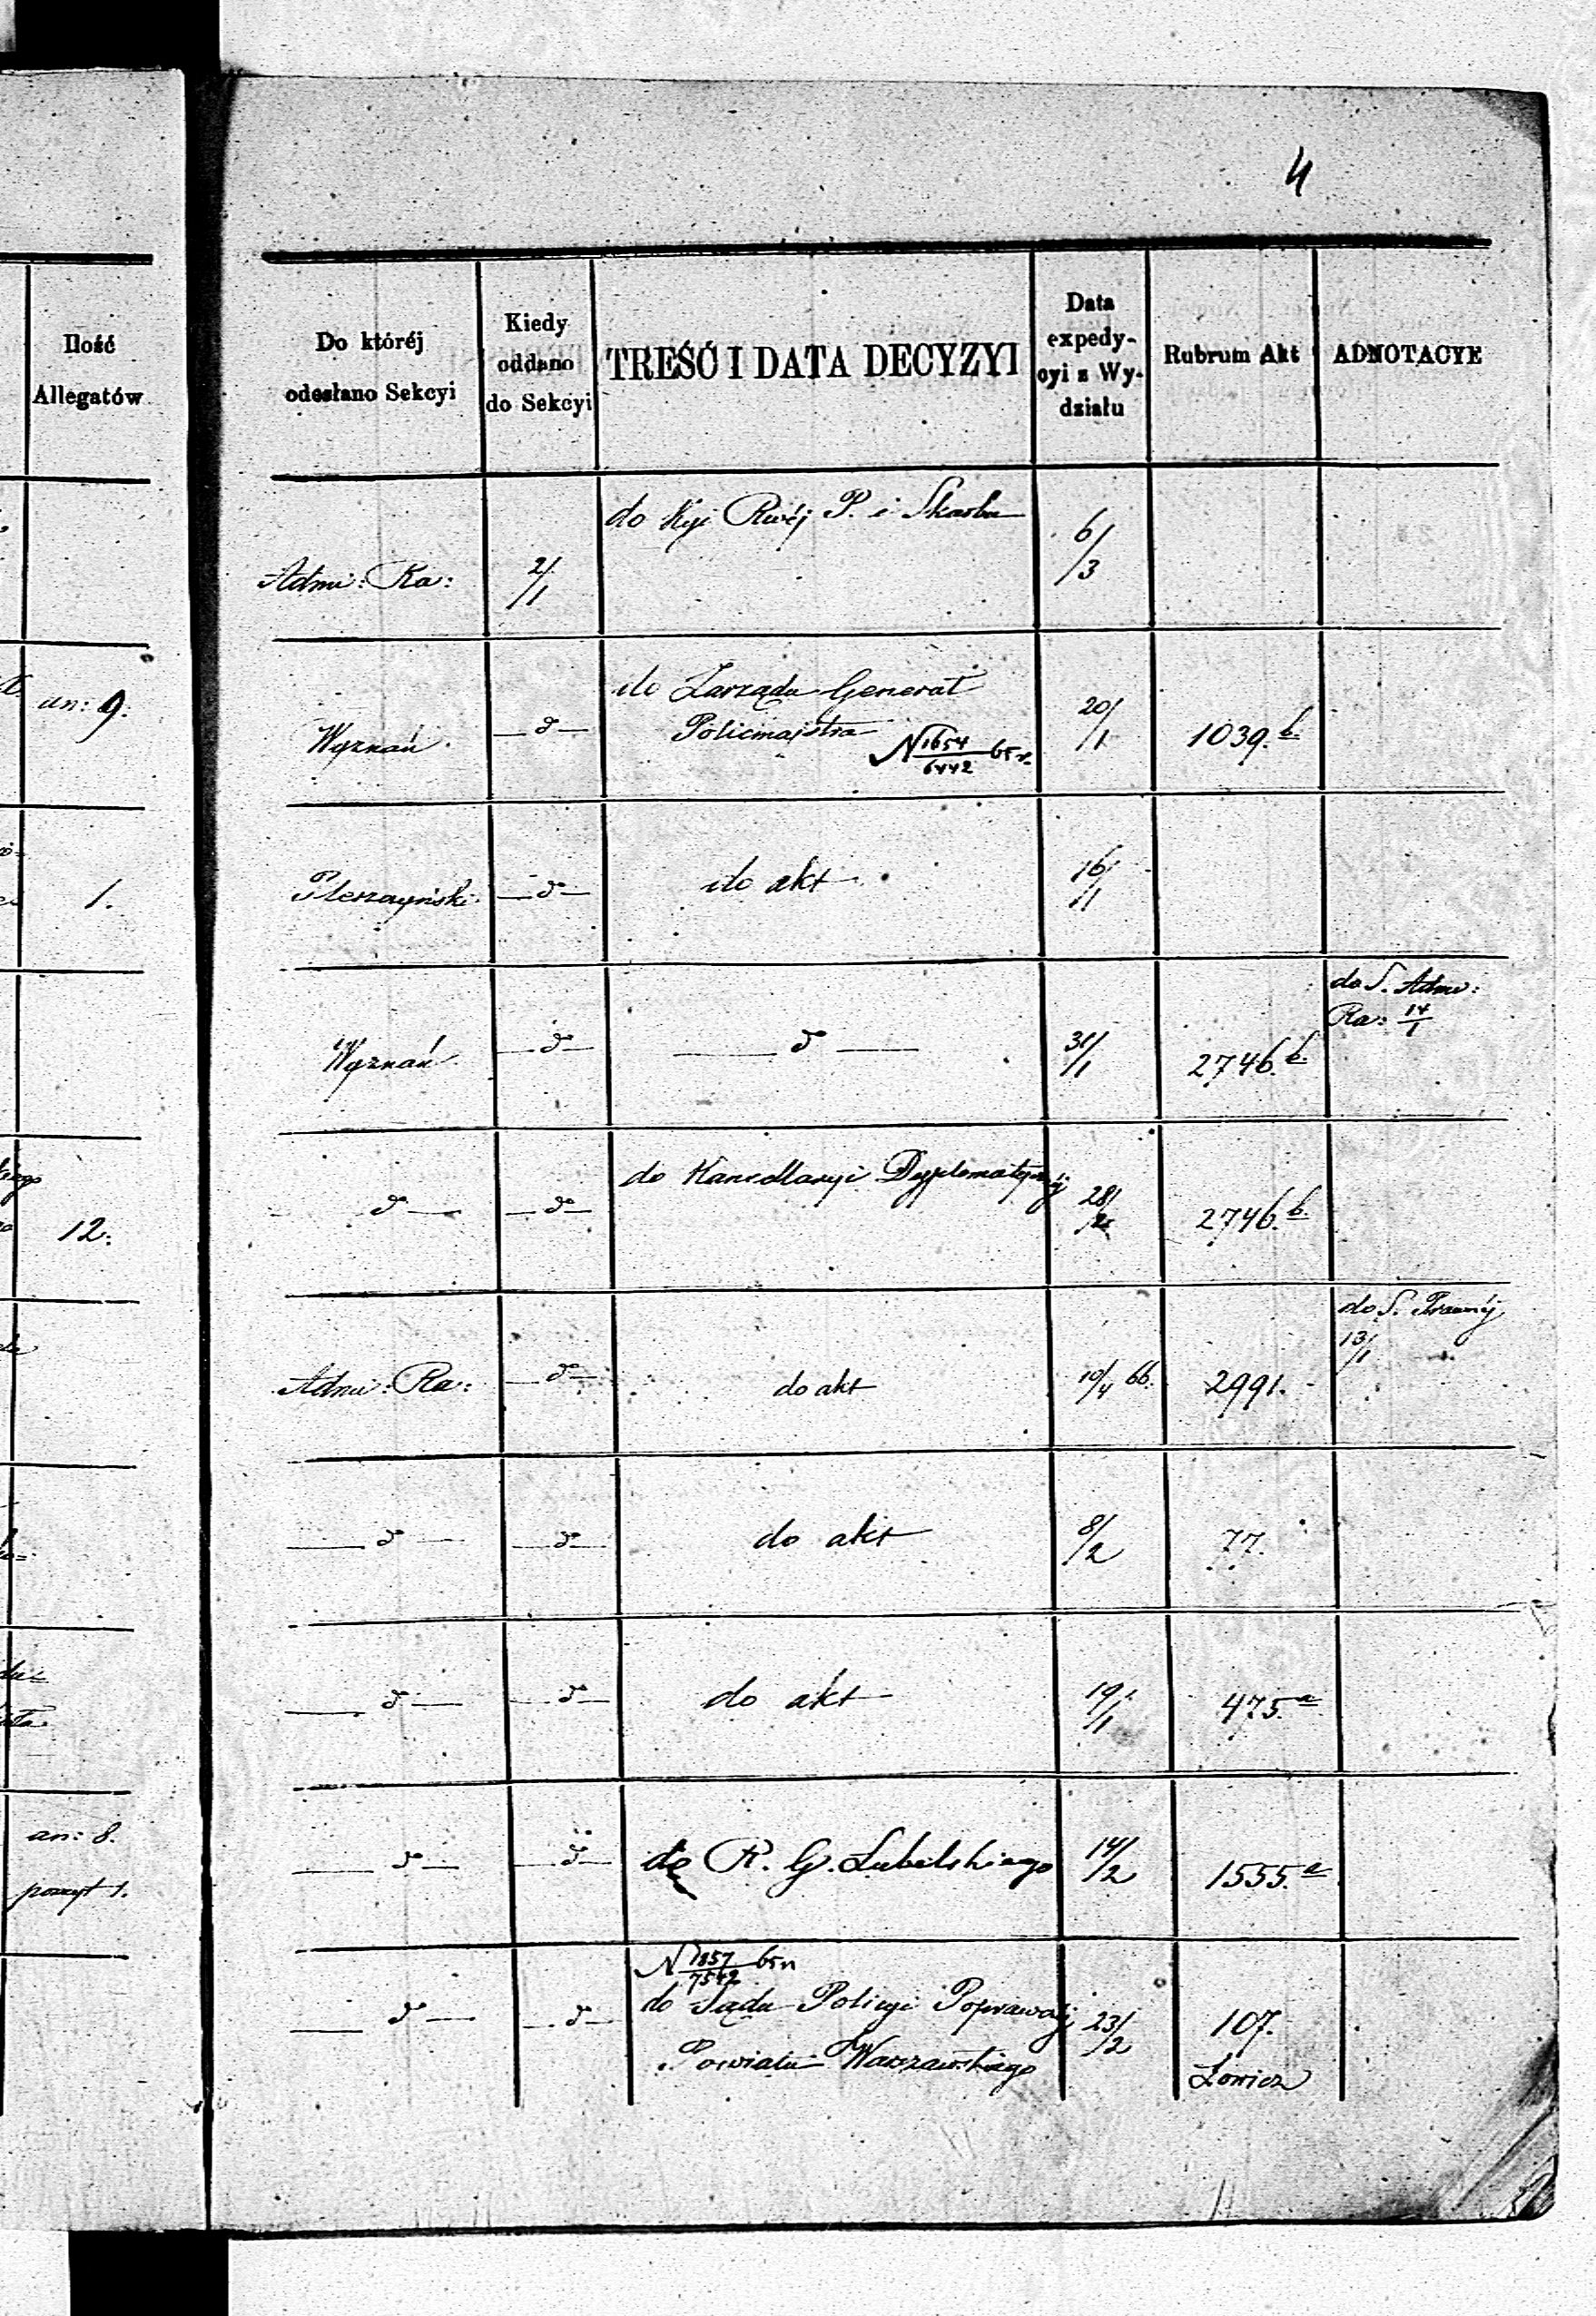 4
Ilość
Allegatów
Do któréj
odesłano Sekcyi
Kiedy
oddano
do Sekcyi
TREŚĆ I DATA DECYZYI
Data
expedy-
cyi z Wy-
działu
Rubrum Akt
ADNOTACYE
Admi: Ra:
2/1
do Kyi Rwéj P. i Skarbu
6/3
an: 9.
Wyznań
— d° —
do Zarządu Generał
Policmajstra
N 1654/6442 65 r.
20/1
1039. b.
1.
— d° —
do akt
16/1
Wyznań
— d° —
— d° —
31/1
2746. b.
do S. Adm:
Ra: 14/1
12.
— d° —
— d° —
do Kancellaryi Dyplomatycznéj
28/2
2746. b.
Admi: Ra:
— d° —
do akt
10/4 66.
2991.
do S. Prawnéj
13/1
— d° —
— d° —
do akt
8/2
77.
— d° —
— d° —
do akt
19/1
475. a
an: 8.
poszyt 1.
— d° —
— d° —
do R. G. Lubelskiego
14/2
1555. a
— d° —
— d° —
N 1857/7542 65 r
do Sądu Policyi Poprawczéj
Powiatu Warszawskiego
23/2
107.
Łowicz